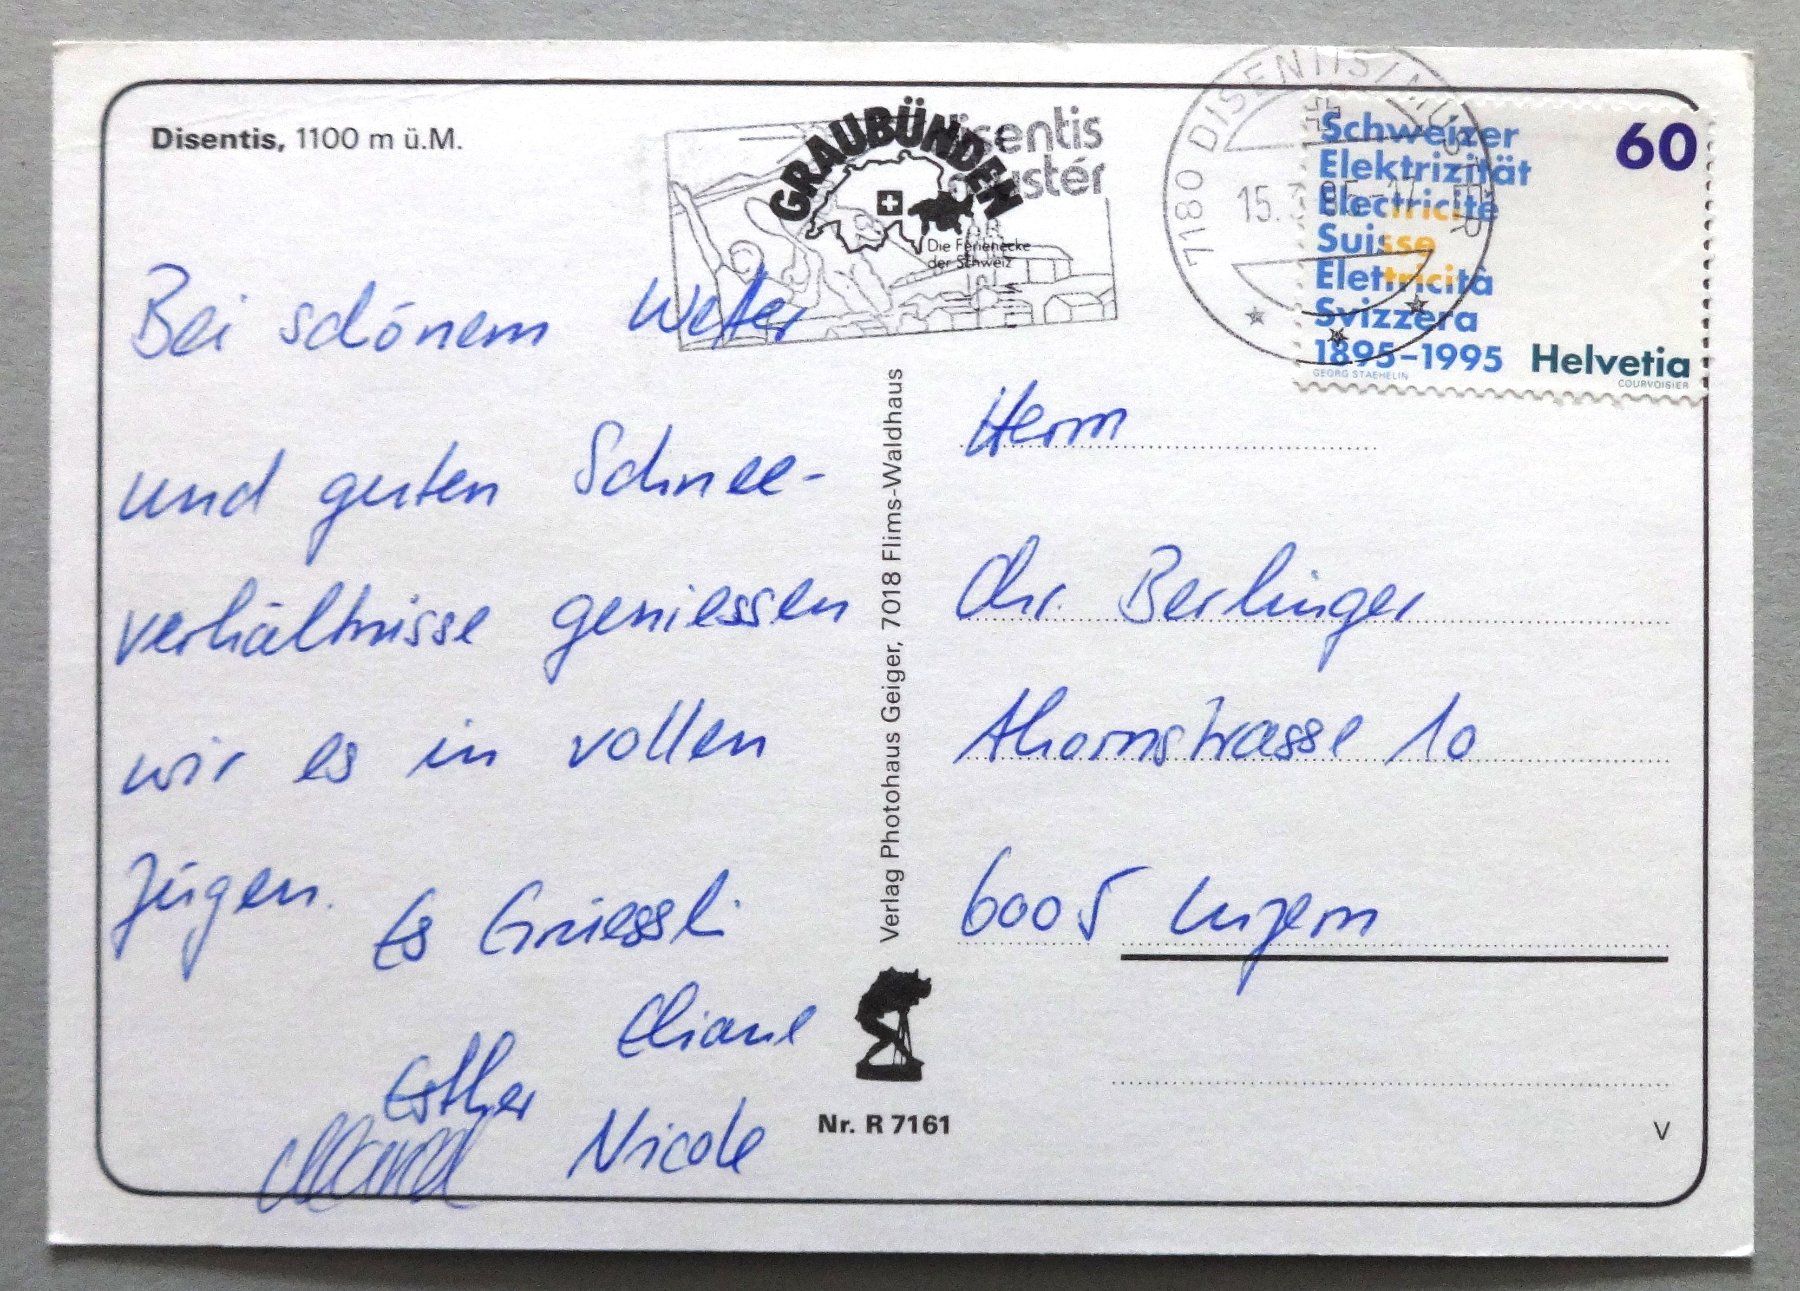 Disentis, 1100 m ü.M.
GRAUBÜNDEN
Die Ferienecke
der Schweiz
7180 DISENTIS/MUSTÉR
Schweizer
Elektrizität
Electricité
Suisse
Elettricità
Svizzera
1895–1995
60
Helvetia
GEORG STAEHELIN
COURVOISIER
Bei schönem Wetter
und guten Schnee-
verhältnisse geniessen
wir es in vollen
Zügen.
Es Grüessli
Eliane
Esther
Nicole
Verlag Photohaus Geiger, 7018 Flims-Waldhaus
Nr. R 7161
Herrn
Chr. Berlinger
Ahornstrasse 10
6005 Luzern
V